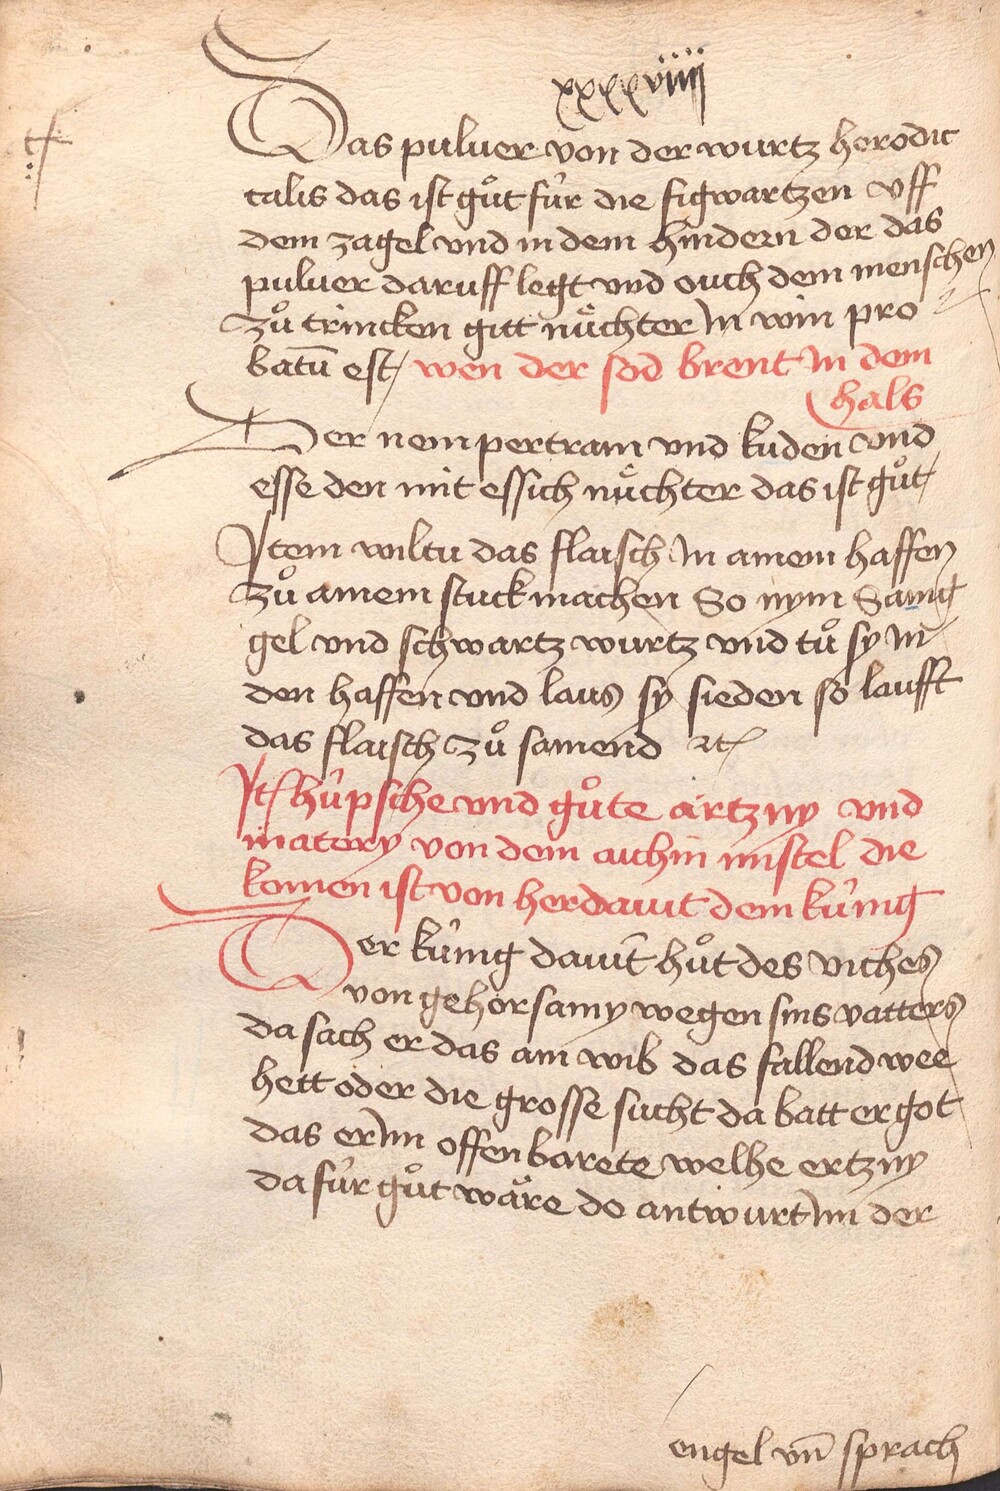 xxxxviiij
Das puluer von der wurtz herodic
talis das ist gůt fúr die figwartzen vff
dem zagel vnd in dem hindern der das
puluer daruff legt vnd ouch dem menschen
zů trincken gitt nüchter In win pro
batū est / wen der sod brent In dem
hals
Der nem pertram vnd kuden vnd
esse den mit essich nüchter das ist gůt /
Item wiltu das flaisch In ainem haffen
zů ainem stuck machen So nym Sanig
gel vnd schwartz wurtz vnd tů sy In
den haffen vnd laus sy sieden so laufft
das flaisch zů samend
It húpsche vnd gůte ärtzny vnd
matery von dem aichin mistel die
komen ist von her dauit dem kúnig
Der kúnig dauit hůt des viches
von gehorsamy wegen sins vatters
da sach er das ain wib das fallend wee
hett oder die grosse sucht da batt er got
das er Im offenbarete welhe ertzny
da fúr gůt wäre do antwurt Im der
engel vn̄ sprach